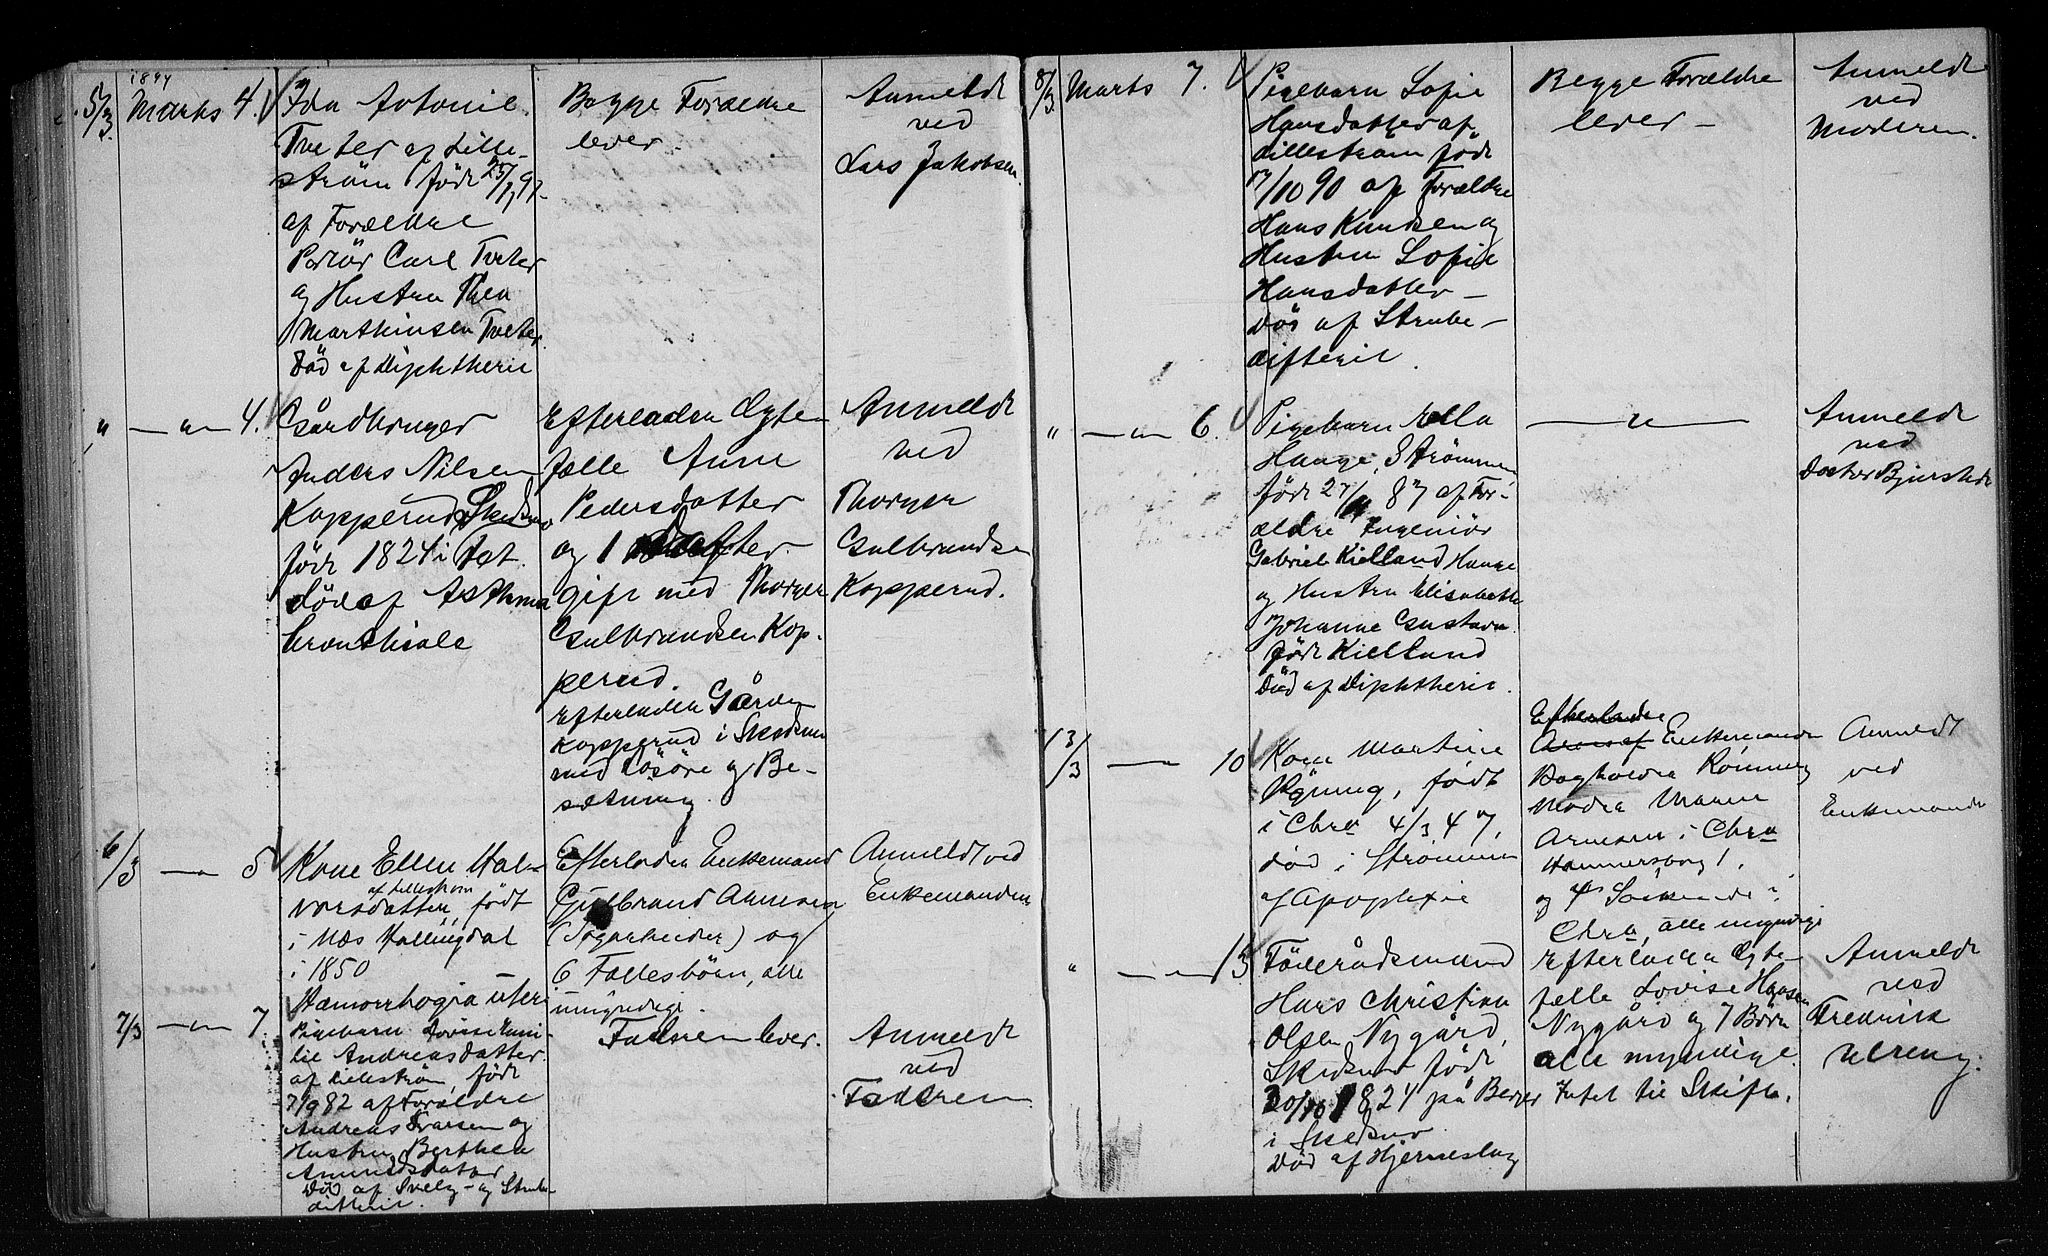 1894
5/3. Marts 4.
Ida Antonie
Tveter af Lille-
strøm født 25/1 91.
af Forældre
Portør Carl Tveter
og Hustru Thea
Marthinsen Tveter.
Død af Diphtherie
Begge Forældre
lever.
Anmeldt
ved
Lars Jakobsen.
" — " — 4.
Gårdbruger
Anders Nilsen
Kopperud, Skedsmo
født 1824 i Fet.
død af Asthma
bronchiale
Efterladen Ægte
fælle Anne
Pedersdatter
og 1 Datter
gift med Thorger
Gulbrandsen Kop-
perud.
Efterladen Gården
Kopperud i Skedsmo
med Løsøre og Be-
sætning.
Anmeldt
ved
Thorger
Gulbrandsen
Kopperud.
6/3 — 5
Kone Ellen Hal-
af Lillestrøm
vorsdatter, født
i Næs Hallingdal
i 1850
Hæmorrhogia uteri
Efterladen Enkemand
Gulbrand Arnesen
(Sagarbeider) og
6 Fællesbørn, alle
umyndige.
Anmeldt ved
Enkemanden
7/3 — " — 7.
Pigebarn Lovise Emi-
lie Andreasdatter.
af Lillestrøm, født
7/9 82 af Forældre
Andreas Ivarsen og
Hustru Berthea
Amundsdatter
Død af Svelg- og Strube-
difterit.
Faderen lever.
Anmeldt
ved
Faderen.
8/3. Marts 7.
Pigebarn Sofie
Hansdatter af
Lillestrøm født
17/10 90 af Forældre
Hans Knudsen og
Hustru Sofie
Hansdatter —
død af Strube-
difterit.
Begge Forældre
lever —
Anmeldt
ved
Moderen.
" — " — 6.
Pigebarn Ella
Hauge, Strømmen,
født 27/11 87 af For-
ældre Ingeniør
Gabriel Kielland Hauge
og Hustru Elisabeth
Johanne Gustava
født Kielland
Død af Diphtherie.
— " —
Anmeldt
ved
Doctor Bjørstad
13/3 — 10
Kone Martine
Rønning, født
i Chra 4/3 47,
død i Strømmen
af Apoplexie
Efterlader
Enkemanden
Bogholder Rønning
Moder Maren
Arnesen i Chra
Hammersborg 1,
og 4 Søskende i
Chra, alle myndige
Anmeldt
ved
Enkemanden
" — " — 13
Føderådsmand
Hans Christian
Olsen Nygård,
Skedsmo født
20/10 1824 på Berger
i Skedsmo
Død af Hjerneslag
Efterladen Ægte-
fælle Lovise Hansen
Nygård og 7 Børn
alle myndige.
Intet til Skifte.
Anmeldt
ved
Fredrik
Ulreng.